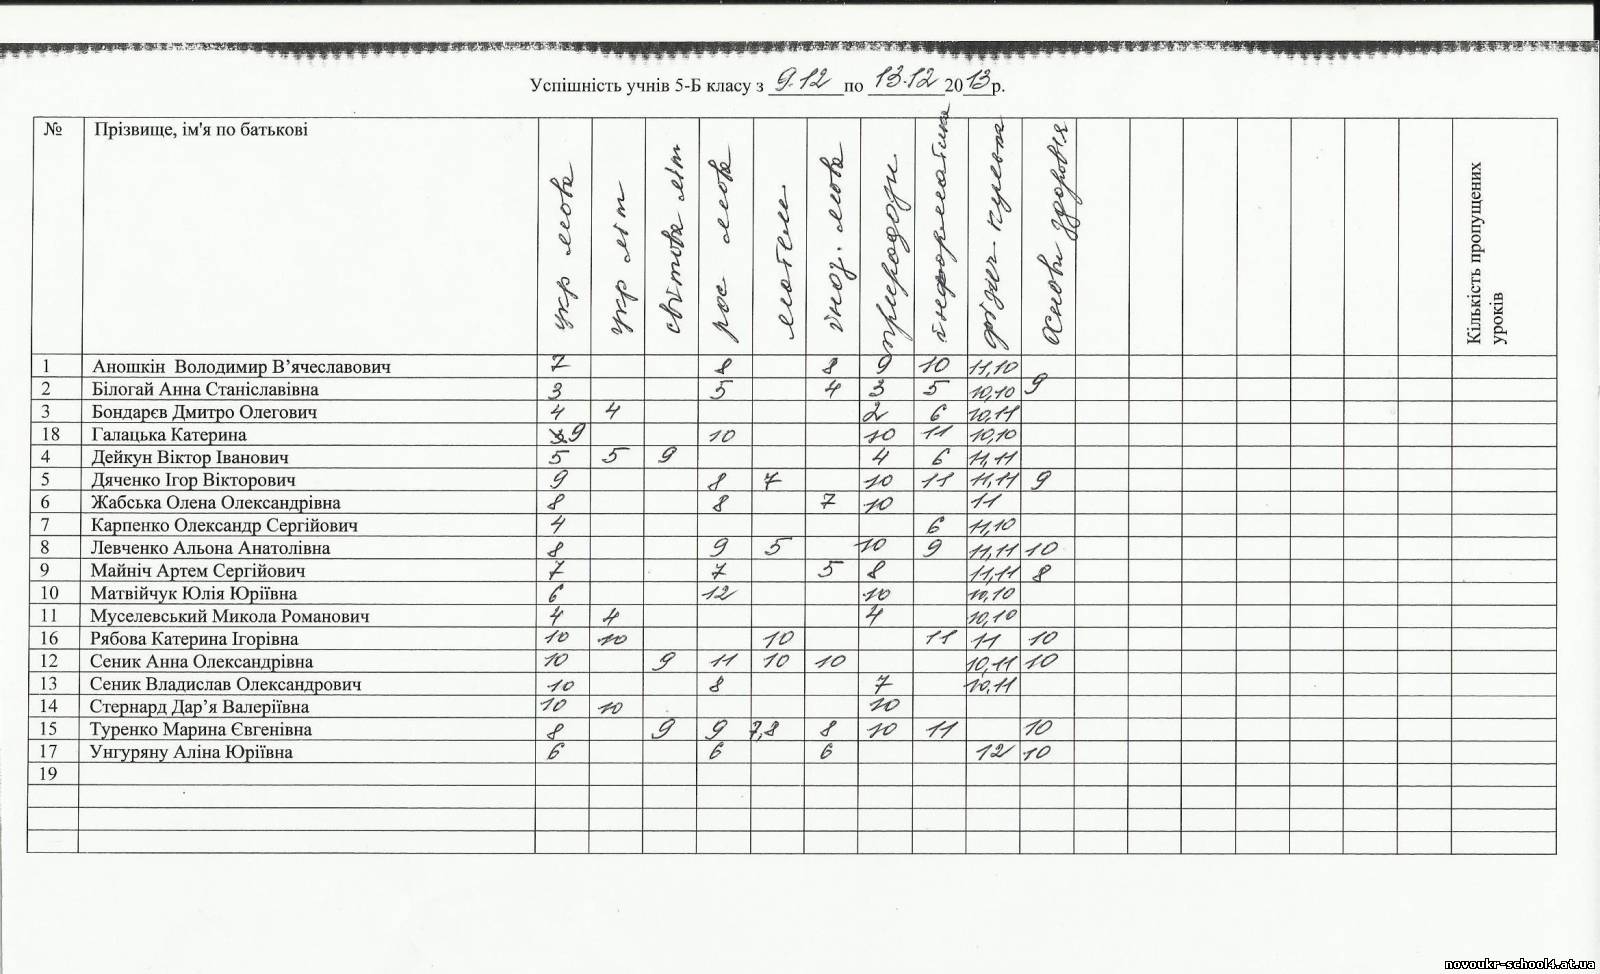 Успішність учнів 5-Б класу з 9.12 по 13.12 2013р.
№ Прізвище, ім'я по батькові укр мова укр літ світова літ рос мова матем іноз. мова природозн інформатика фізич культ основи здоров'я Кількість пропущених уроків
1 Аношкін Володимир В’ячеславович 7 8 8 9 10 11,10
2 Білогай Анна Станіславівна 3 5 4 3 5 10,10 9
3 Бондарєв Дмитро Олегович 4 4 2 6 10,11
18 Галацька Катерина 9 10 10 11 10,10
4 Дейкун Віктор Іванович 5 5 9 4 6 11,11
5 Дяченко Ігор Вікторович 9 8 7 10 11 11,11 9
6 Жабська Олена Олександрівна 8 8 7 10 11
7 Карпенко Олександр Сергійович 4 6 11,10
8 Левченко Альона Анатолівна 8 9 5 10 9 11,11 10
9 Майніч Артем Сергійович 7 7 5 8 11,11 8
10 Матвійчук Юлія Юріївна 6 12 10 10,10
11 Муселевський Микола Романович 4 4 4 10,10
16 Рябова Катерина Ігорівна 10 10 10 11 11 10
12 Сеник Анна Олександрівна 10 9 11 10 10 10,11 10
13 Сеник Владислав Олександрович 10 8 7 10,11
14 Стернард Дар’я Валеріївна 10 10 10
15 Туренко Марина Євгенівна 8 9 9 7,8 8 10 11 10
17 Унгуряну Аліна Юріївна 6 6 6 12 10
19
novoukr-school4.at.ua